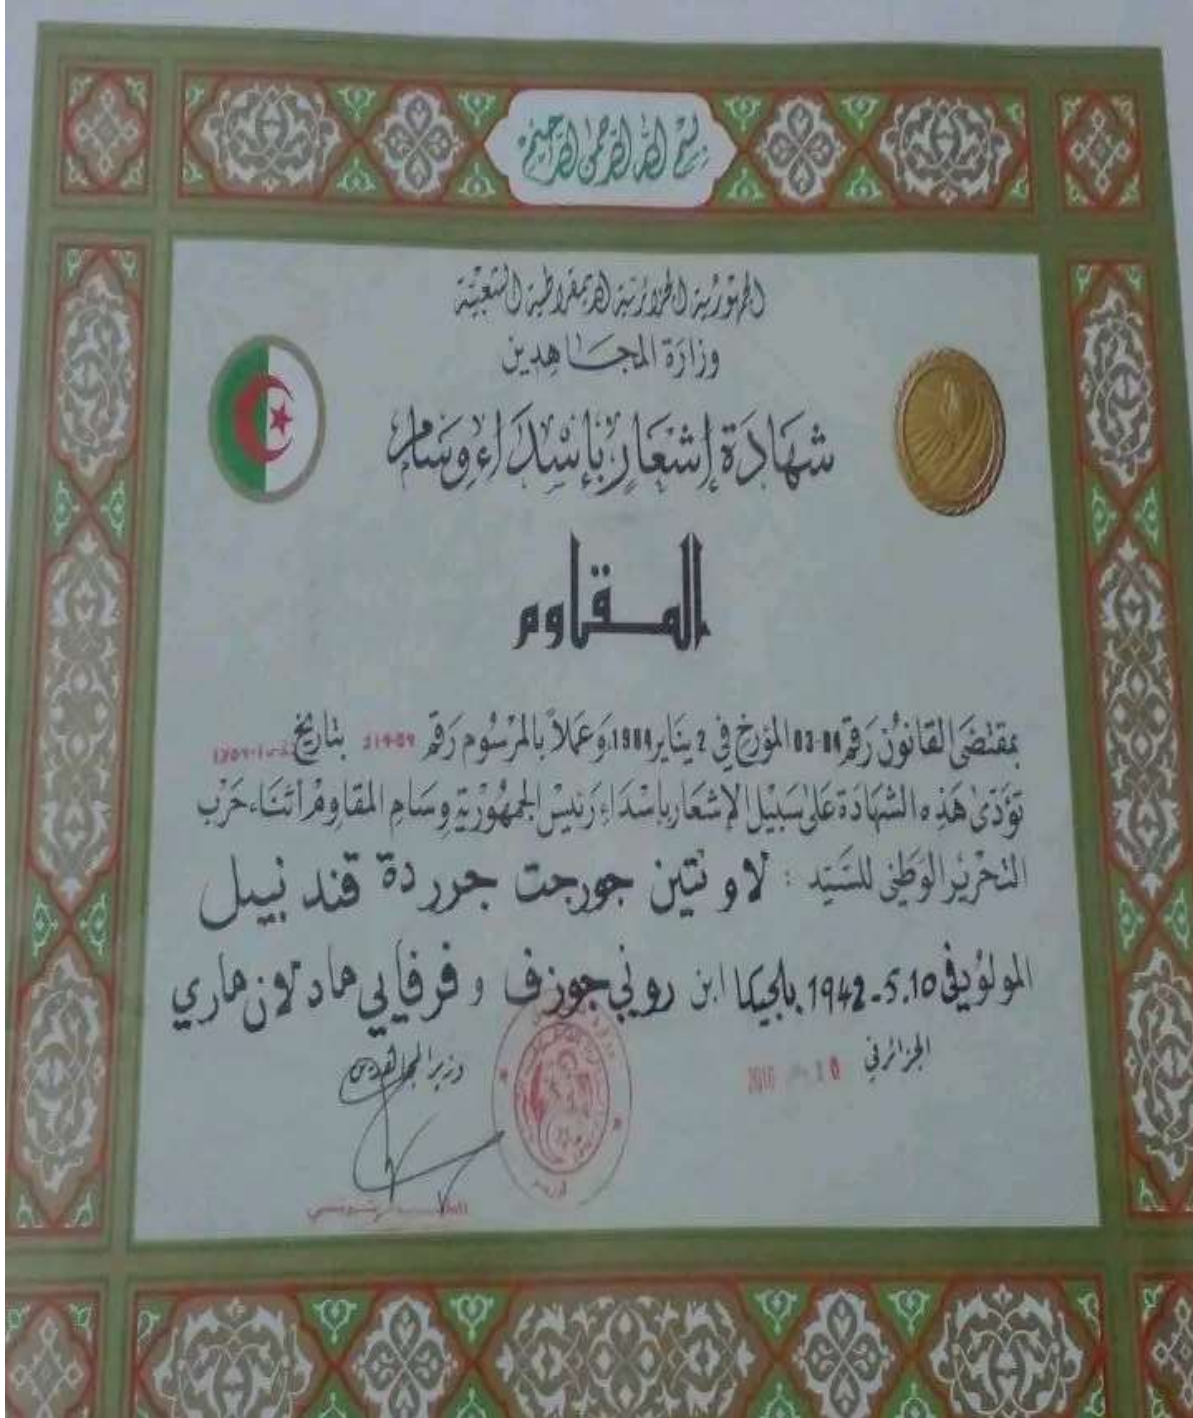 بسم الله الرحمن الرحيم
الجمهورية الجزائرية الديمقراطية الشعبية
وزارة المجاهدين
شهادة إشعار بإسداء وسام
المقاوم
بمقتضى القانون رقم 84-03 المؤرخ في 2 يناير 1984 وعملا بالمرسوم رقم بتاريخ
تؤدى هذه الشهادة على سبيل الإشعار بإسداء رئيس الجمهورية وسام المقاوم أثناء حرب
التحرير الوطني للسيد : لاونتين جورجت جرردة قند نبيل
المولود في 10.5-1942 بلجيكا ابن روني جوزف و فرفايي مادلان ماري
الجزائر في 2016
وزير المجاهدين